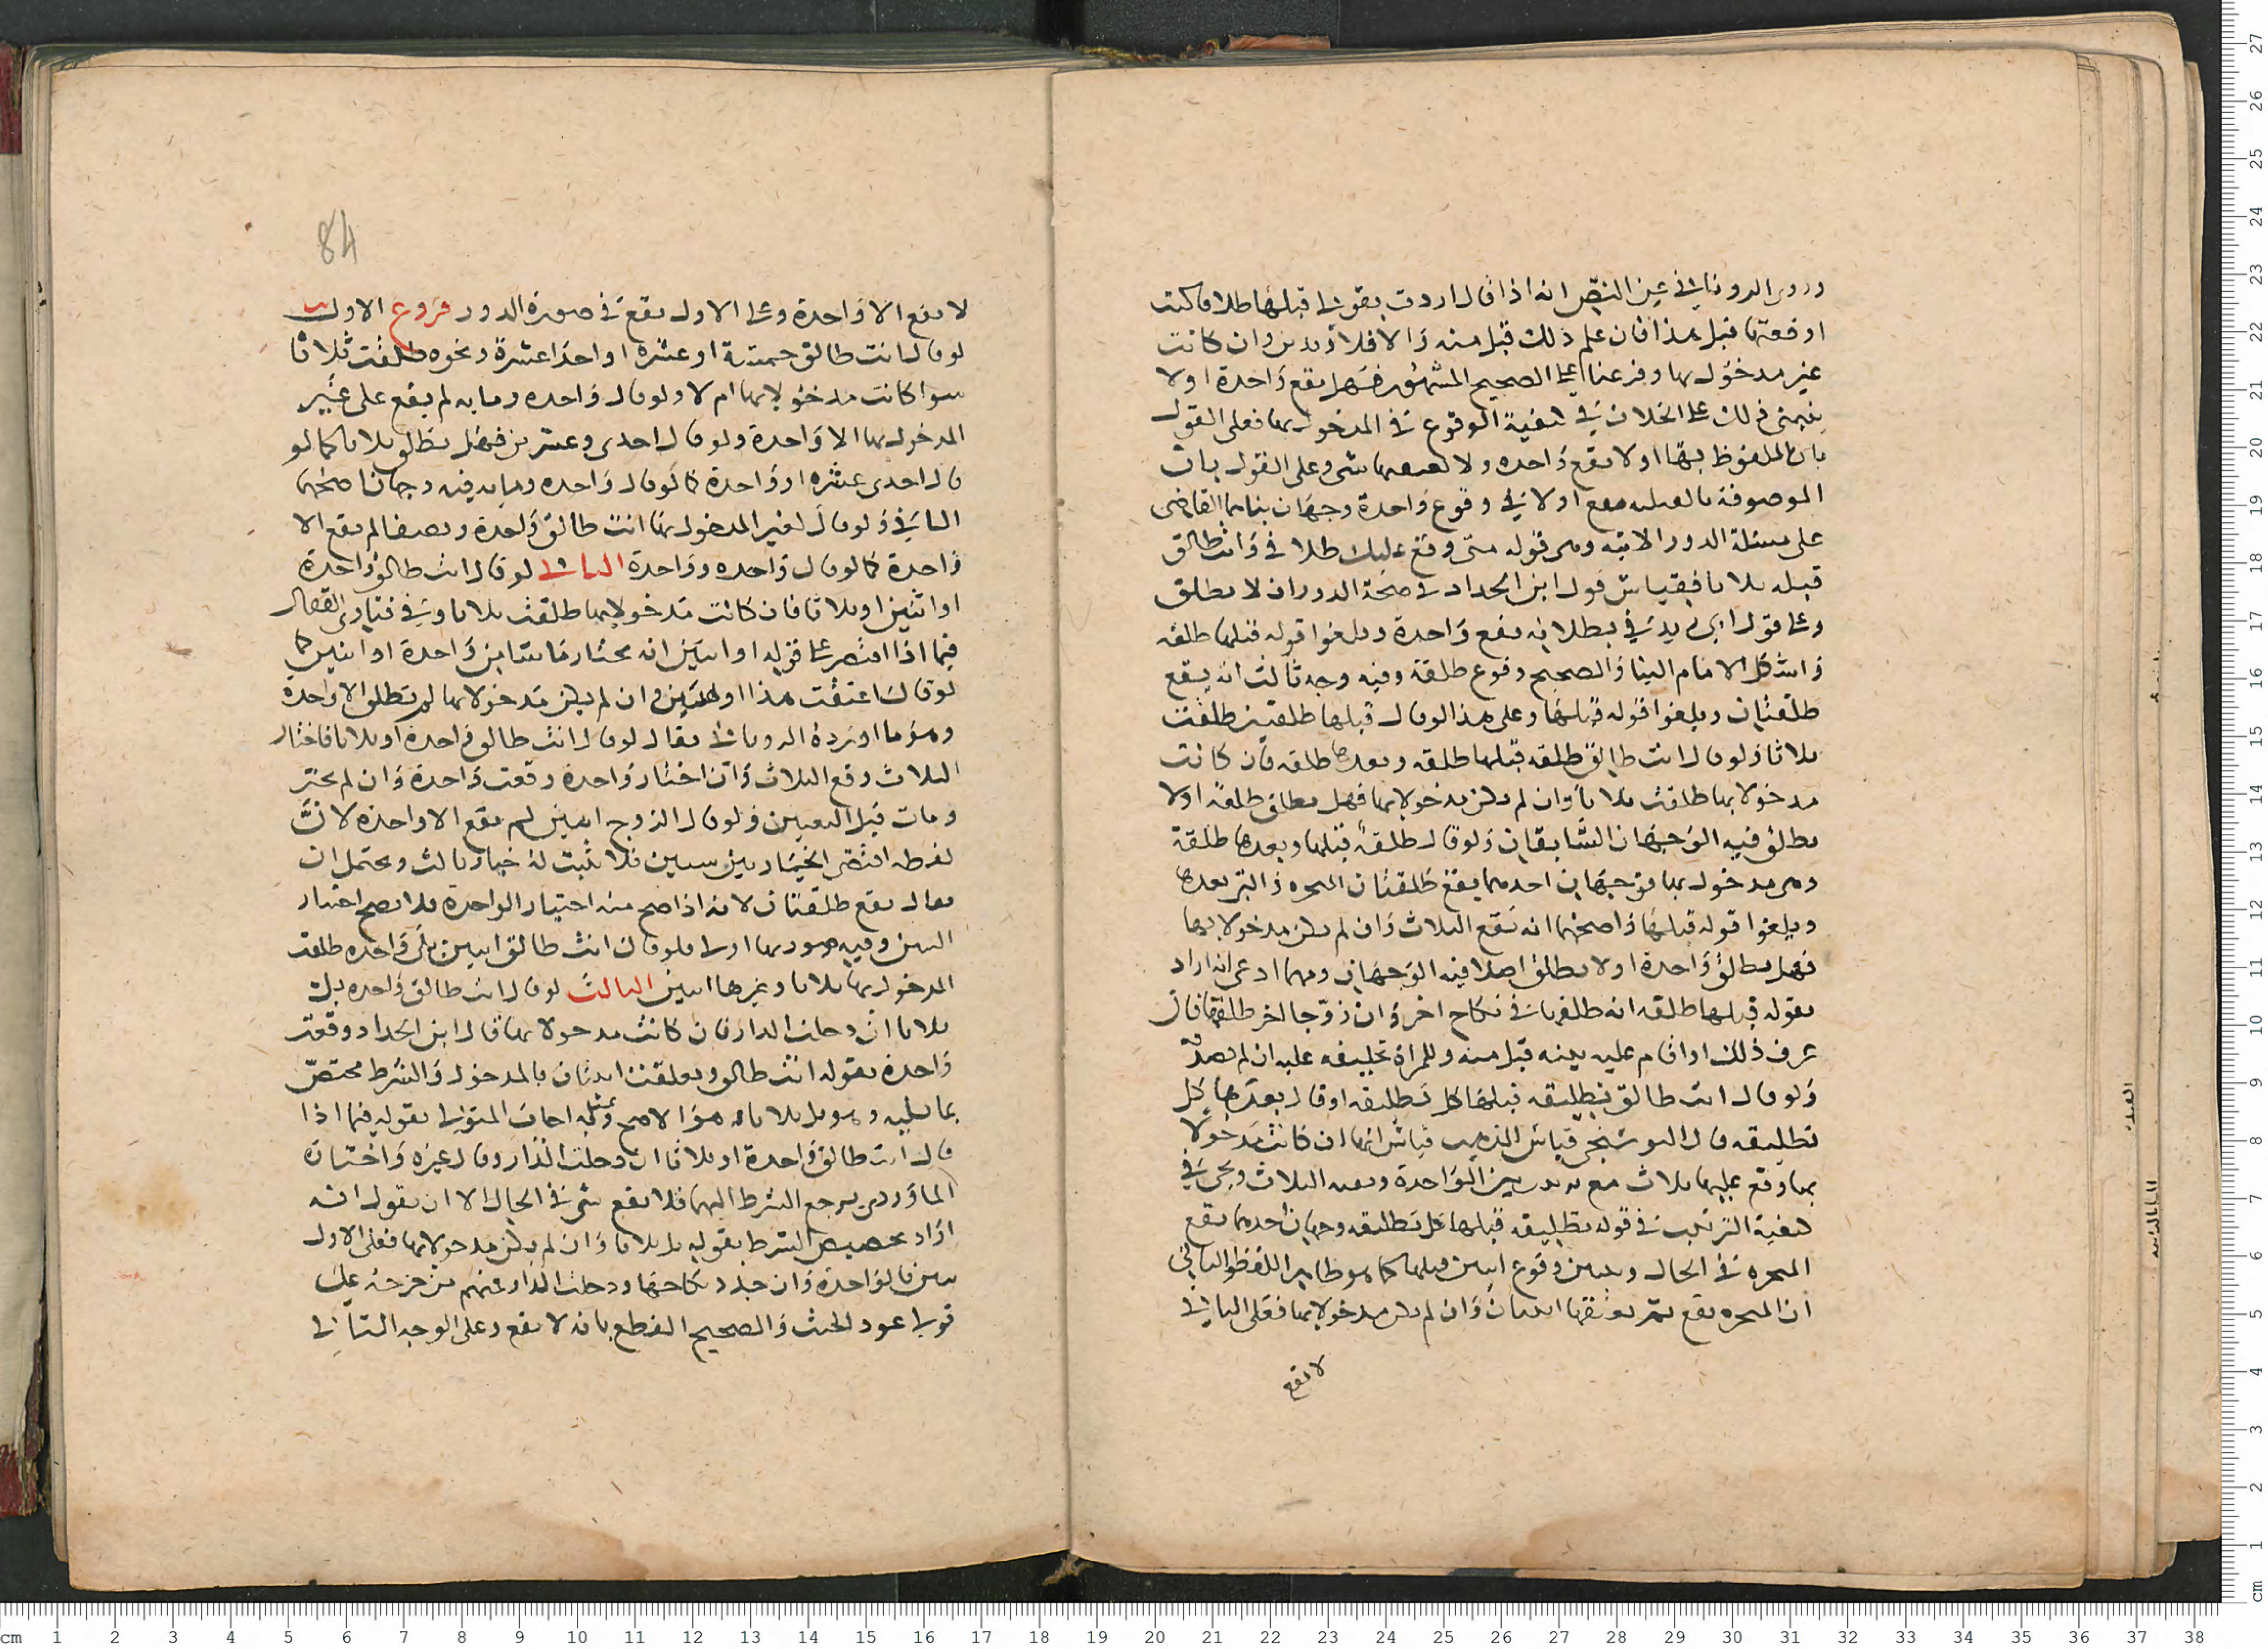 وروى الروياني في عين النص انه اذا قال اردت بقولي قبلها طلاقا كنت
اوقعته قبل هذا فان علم ذلك قبل منه والا فلا ويدين وان كانت
غير مدخول بها وفرعنا على الصحيح المشهور فهل يقع واحدة اولا
ينبني ذلك على الخلاف في كيفية الوقوع في المدخول بها فعلى القول
بان الملفوظ بها اولا يقع واحده ولا شى وعلى القول بان
الموصوفة بالقبلية تقع اولا في وقوع واحدة وجهان بناهما القاضى
على مسئلة الدور الاتيه وهى قوله متى وقع عليك طلاقي فانت طالق
قبله ثلاثا فقياس قول ابن الحداد في صحة الدور ان لا تطلق
وعلى قول ابى زيد في بطلانه يقع واحدة ويلغوا قوله قبلها طلقه
واستشكل الامام البنا والصحيح وقوع طلقة وفيه وجه ثالث انه يقع
طلقتان ويلغوا قوله قبلها وعلى هذا لو قال قبلها طلقتين طلقت
ثلاثا ولو قال انت طالق طلقه قبلها طلقه وبعدها طلقه فان كانت
مدخولا بها طلقت ثلاثا وان لم يكن مدخولا بها فهل تطلق طلقة اولا
تطلق فيه الوجهان السابقان ولو قال طلقة قبلها وبعدها طلقة
وهى مدخول بها فوجهان احدهما يقع طلقتان المنجزه والتى بعدها
ويلغوا قوله قبلها واصحهما انه تقع الثلاث وان لم يكن مدخولا بها
فهل تطلق واحدة اولا تطلق اصلا فيه الوجهان ومهما ادعى انه اراد
بقوله قبلها طلقه انه طلقها في نكاح اخر وان زوجا اخر طلقها فان
عرف ذلك او اقام عليه بينه قبل منه وللمراة تحليفه عليه ان لم تصدقه
ولو قال انت طالق تطليقه قبلها كل تطليقه او قال بعدها كل
تطليقه قال البوشنجي قياس المذهب قياس انها ان كانت مدخولا
بها وقع عليها ثلاث مع ترتيب بين الواحدة وبقيه الثلاث ويجى في
كيفية الترتيب في قوله تطليقه قبلها كل تطليقه وجهان احدهما تقع
المنجزه في الحال وتبين وقوع اثنتين قبلها كما هو ظاهر اللفظ والثاني
ان المنجزه تقع ثم تعقبها اثنتان وان لم يكن مدخولا بها فعلى الثاني
لا يقع
84
لا يقع الا واحدة وعلى الاول يقع في صورة الدور فروع الاول
لو قال انت طالق خمسة او عشره او احد عشرة ونحوه طلقت ثلاثا
سوا كانت مدخولا بها ام لا ولو قال واحده ومايه لم يقع على غير
المدخول بها الا واحدة ولو قال احدى وعشرين فهل تطلق ثلاثا كما لو
قال احدى عشره او واحدة كما لو قال واحده ومايه فيه وجهان اصحهما
الثاني ولو قال لغير المدخول بها انت طالق واحدة ونصفا لم يقع الا
واحدة كما لو قال واحده وواحدة الثاني لو قال انت طالق واحدة
او اثنتين او ثلاثا فان كانت مدخولا بها طلقت ثلاثا وفي فتاوى القفال
فيما اذا اقتصر على قوله او اثنتين انه يختار ما شا من واحدة او اثنتين كما
لو قال اعتقت هذا او هذين وان لم يكن مدخولا بها لم تطلق الا واحدة
وهو ما اورده الرويانى فقال لو قال انت طالق واحدة او ثلاثا فاختار
الثلاث وقع الثلاث وان اختار واحدة وقعت واحدة وان لم يختر
ومات قبل التعيين ولو قال الزوج لم يقع الا واحدة لان
لفظه اقتضى الخيار بين شيئين فلا يثبت له خيار ثالث ويحتمل ان
يقال يقع طلقتان لانه اذا صح منه اختيار الواحدة فلا يصح اختيار
اثنتين وفيه صورتها اولى فلو قال انت طالق اثنتين بل واحده طلقت
المدخول بها ثلاثا وغيرها اثنتين الثالث لو قال انت طالق واحده بل
ثلاثا ان دخلت الدار فان كانت مدخولا بها قال ابن الحداد وقعت
واحدة بقوله انت طالق وتعلقت اثنتان بالمدخول والشرط مختص
بما يليه وهو بل ثلاثا هو الاصح وبمثله اجاب المتولى بقوله فيما اذا
قال انت طالق واحدة او ثلاثا ان دخلت الدار وقال غيره واختاره
الماوردى يرجع الشرط اليهما فلا يقع شى في الحال الا ان يقول انه
اراد تخصيص الشرط بقوله بل ثلاثا وان لم يكن مدخولا بها فعلى الاول
تبين بالواحدة وان جدد نكاحها ودخلت الدار فمنهم من خرجه على
قولى عود الحنث والصحيح القطع بانه لا يقع وعلى الوجه الثانى